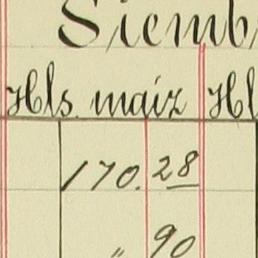 Siemb
Hls. maiz Hl
170. 28
" 90